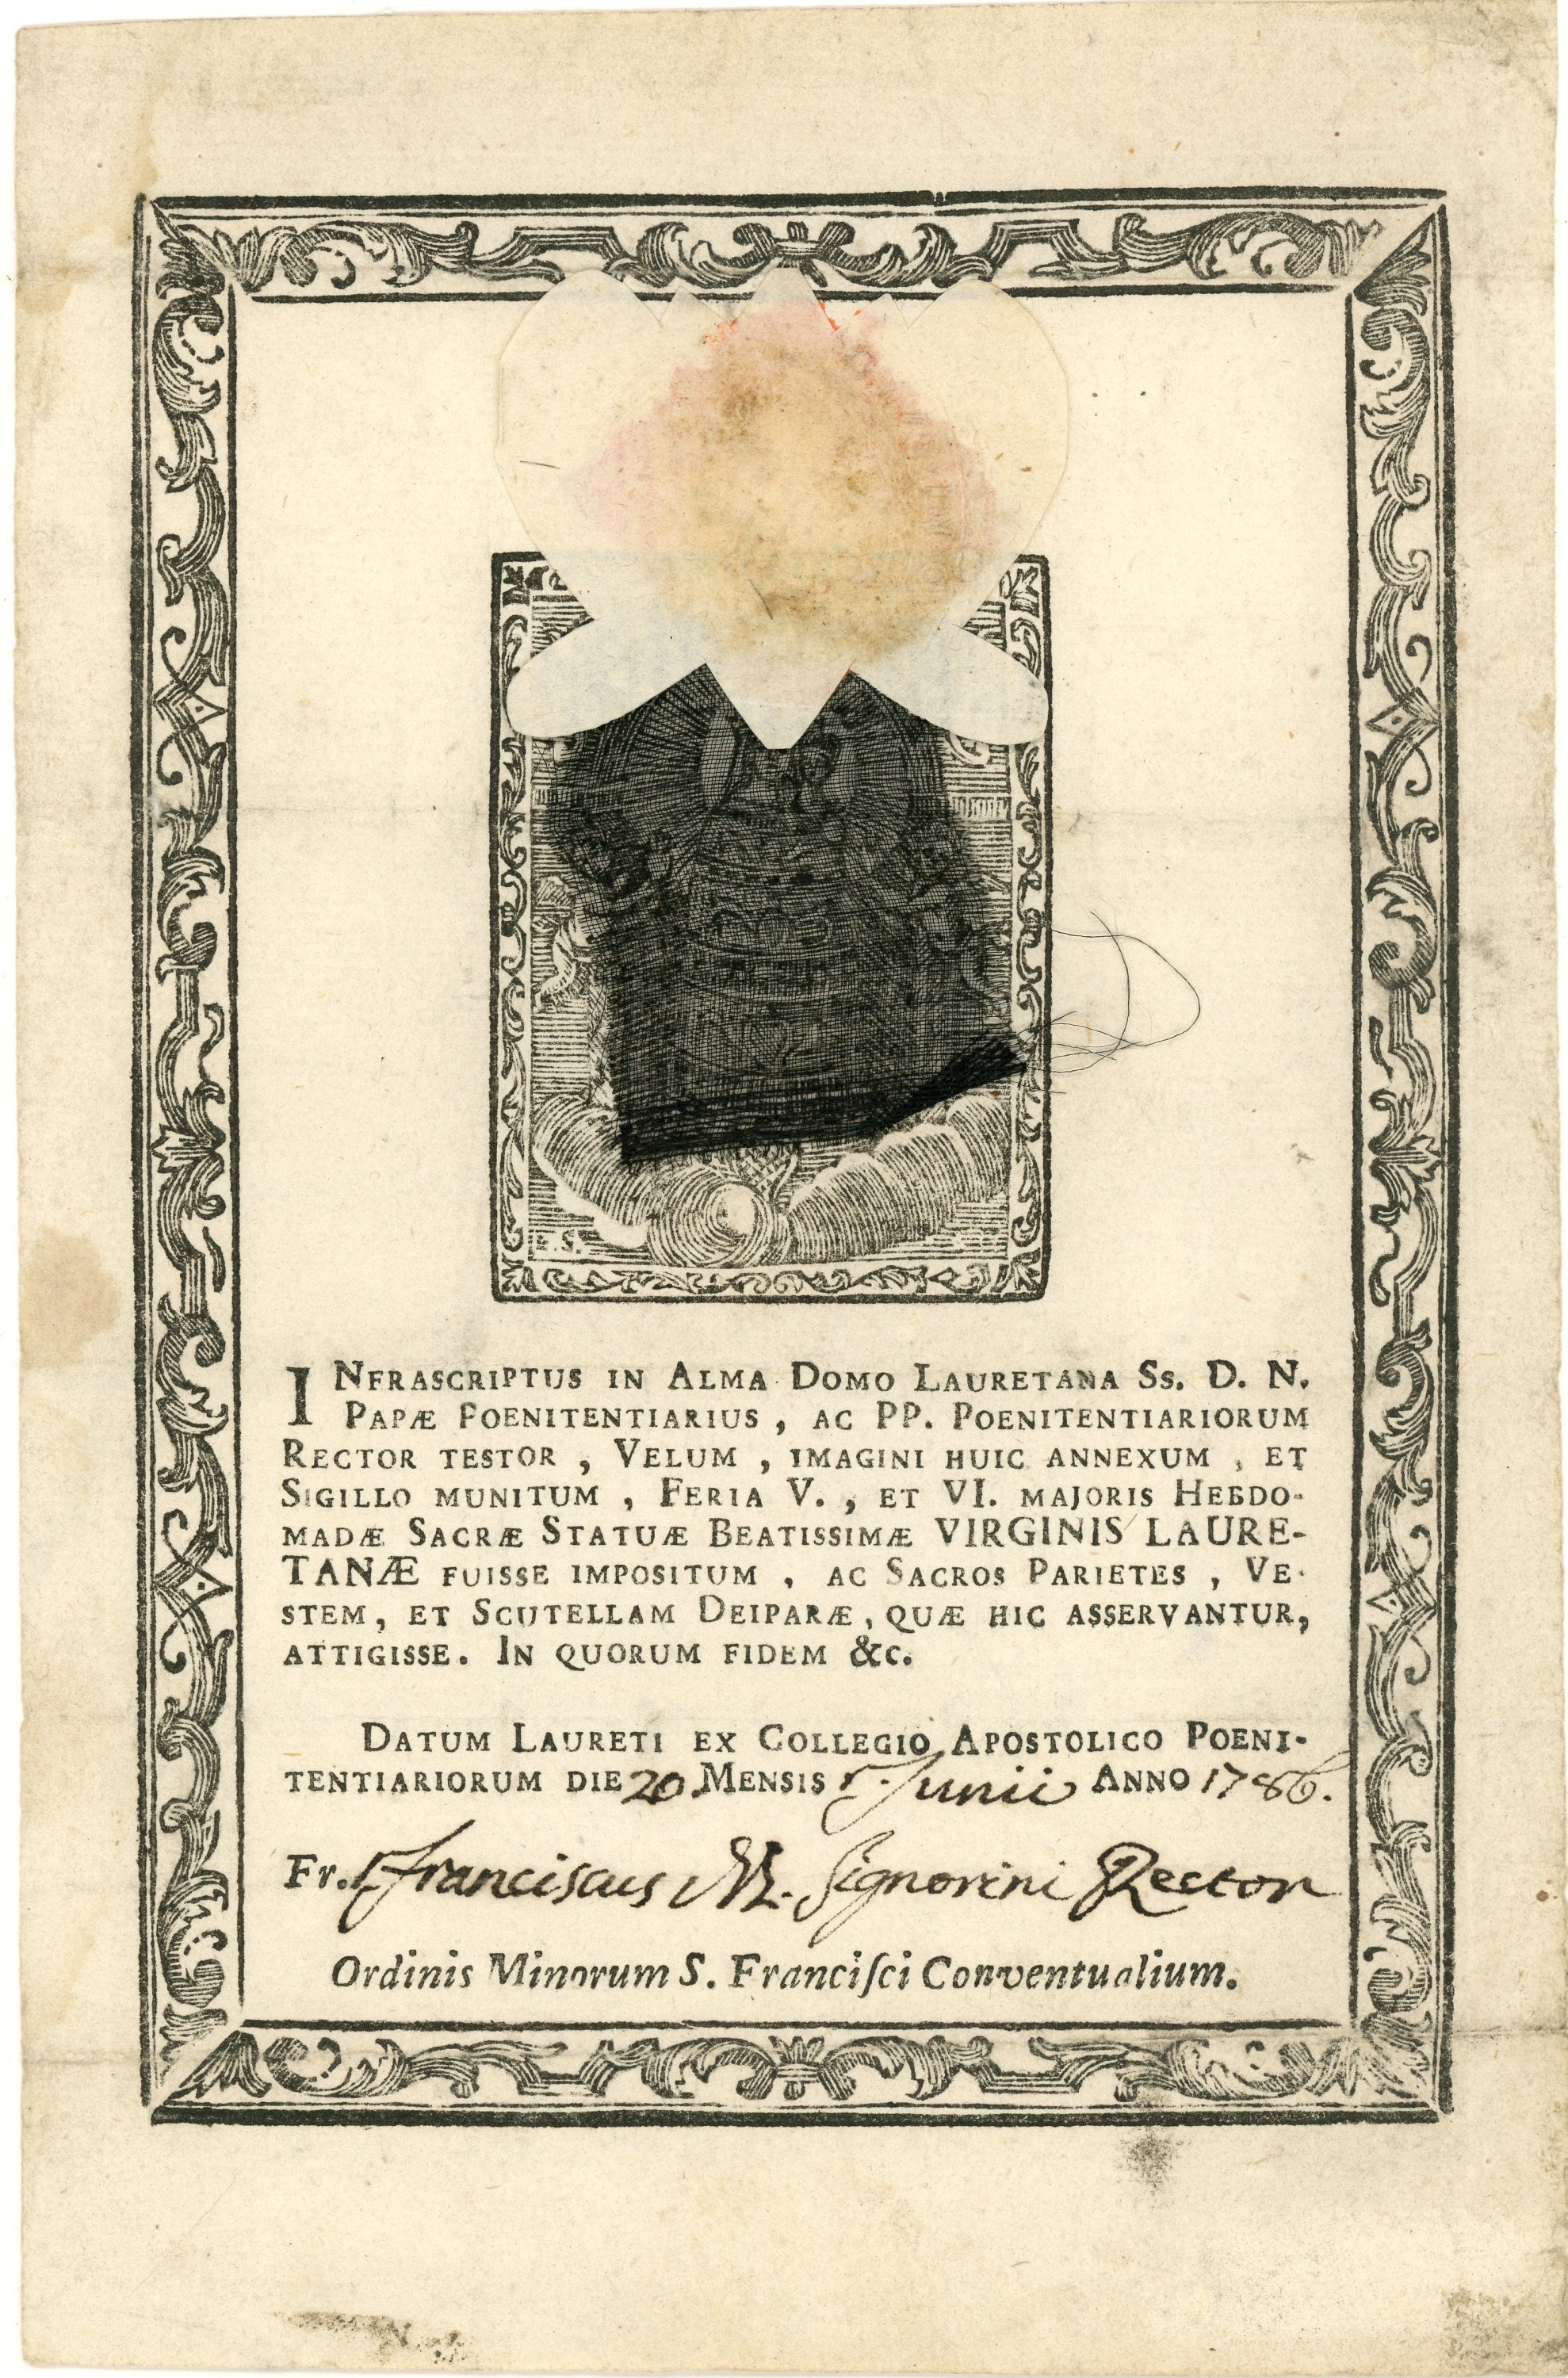 E. S.
INFRASCRIPTUS IN ALMA DOMO LAURETANA SS. D. N.
PAPÆ POENITENTIARIUS, AC PP. POENITENTIARIORUM
RECTOR TESTOR, VELUM, IMAGINI HUIC ANNEXUM, ET
SIGILLO MUNITUM, FERIA V., ET VI. MAJORIS HEBDO-
MADÆ SACRÆ STATUÆ BEATISSIMÆ VIRGINIS LAURE-
TANÆ FUISSE IMPOSITUM, AC SACROS PARIETES, VE-
STEM, ET SCUTELLAM DEIPARÆ, QUÆ HIC ASSERVANTUR,
ATTIGISSE. IN QUORUM FIDEM &C.
DATUM LAURETI EX COLLEGIO APOSTOLICO POENI-
TENTIARIORUM DIE 20. MENSIS Junii ANNO 1786.
Fr. Franciscus M. Signorini Rector
Ordinis Minorum S. Franciſci Conventualium.